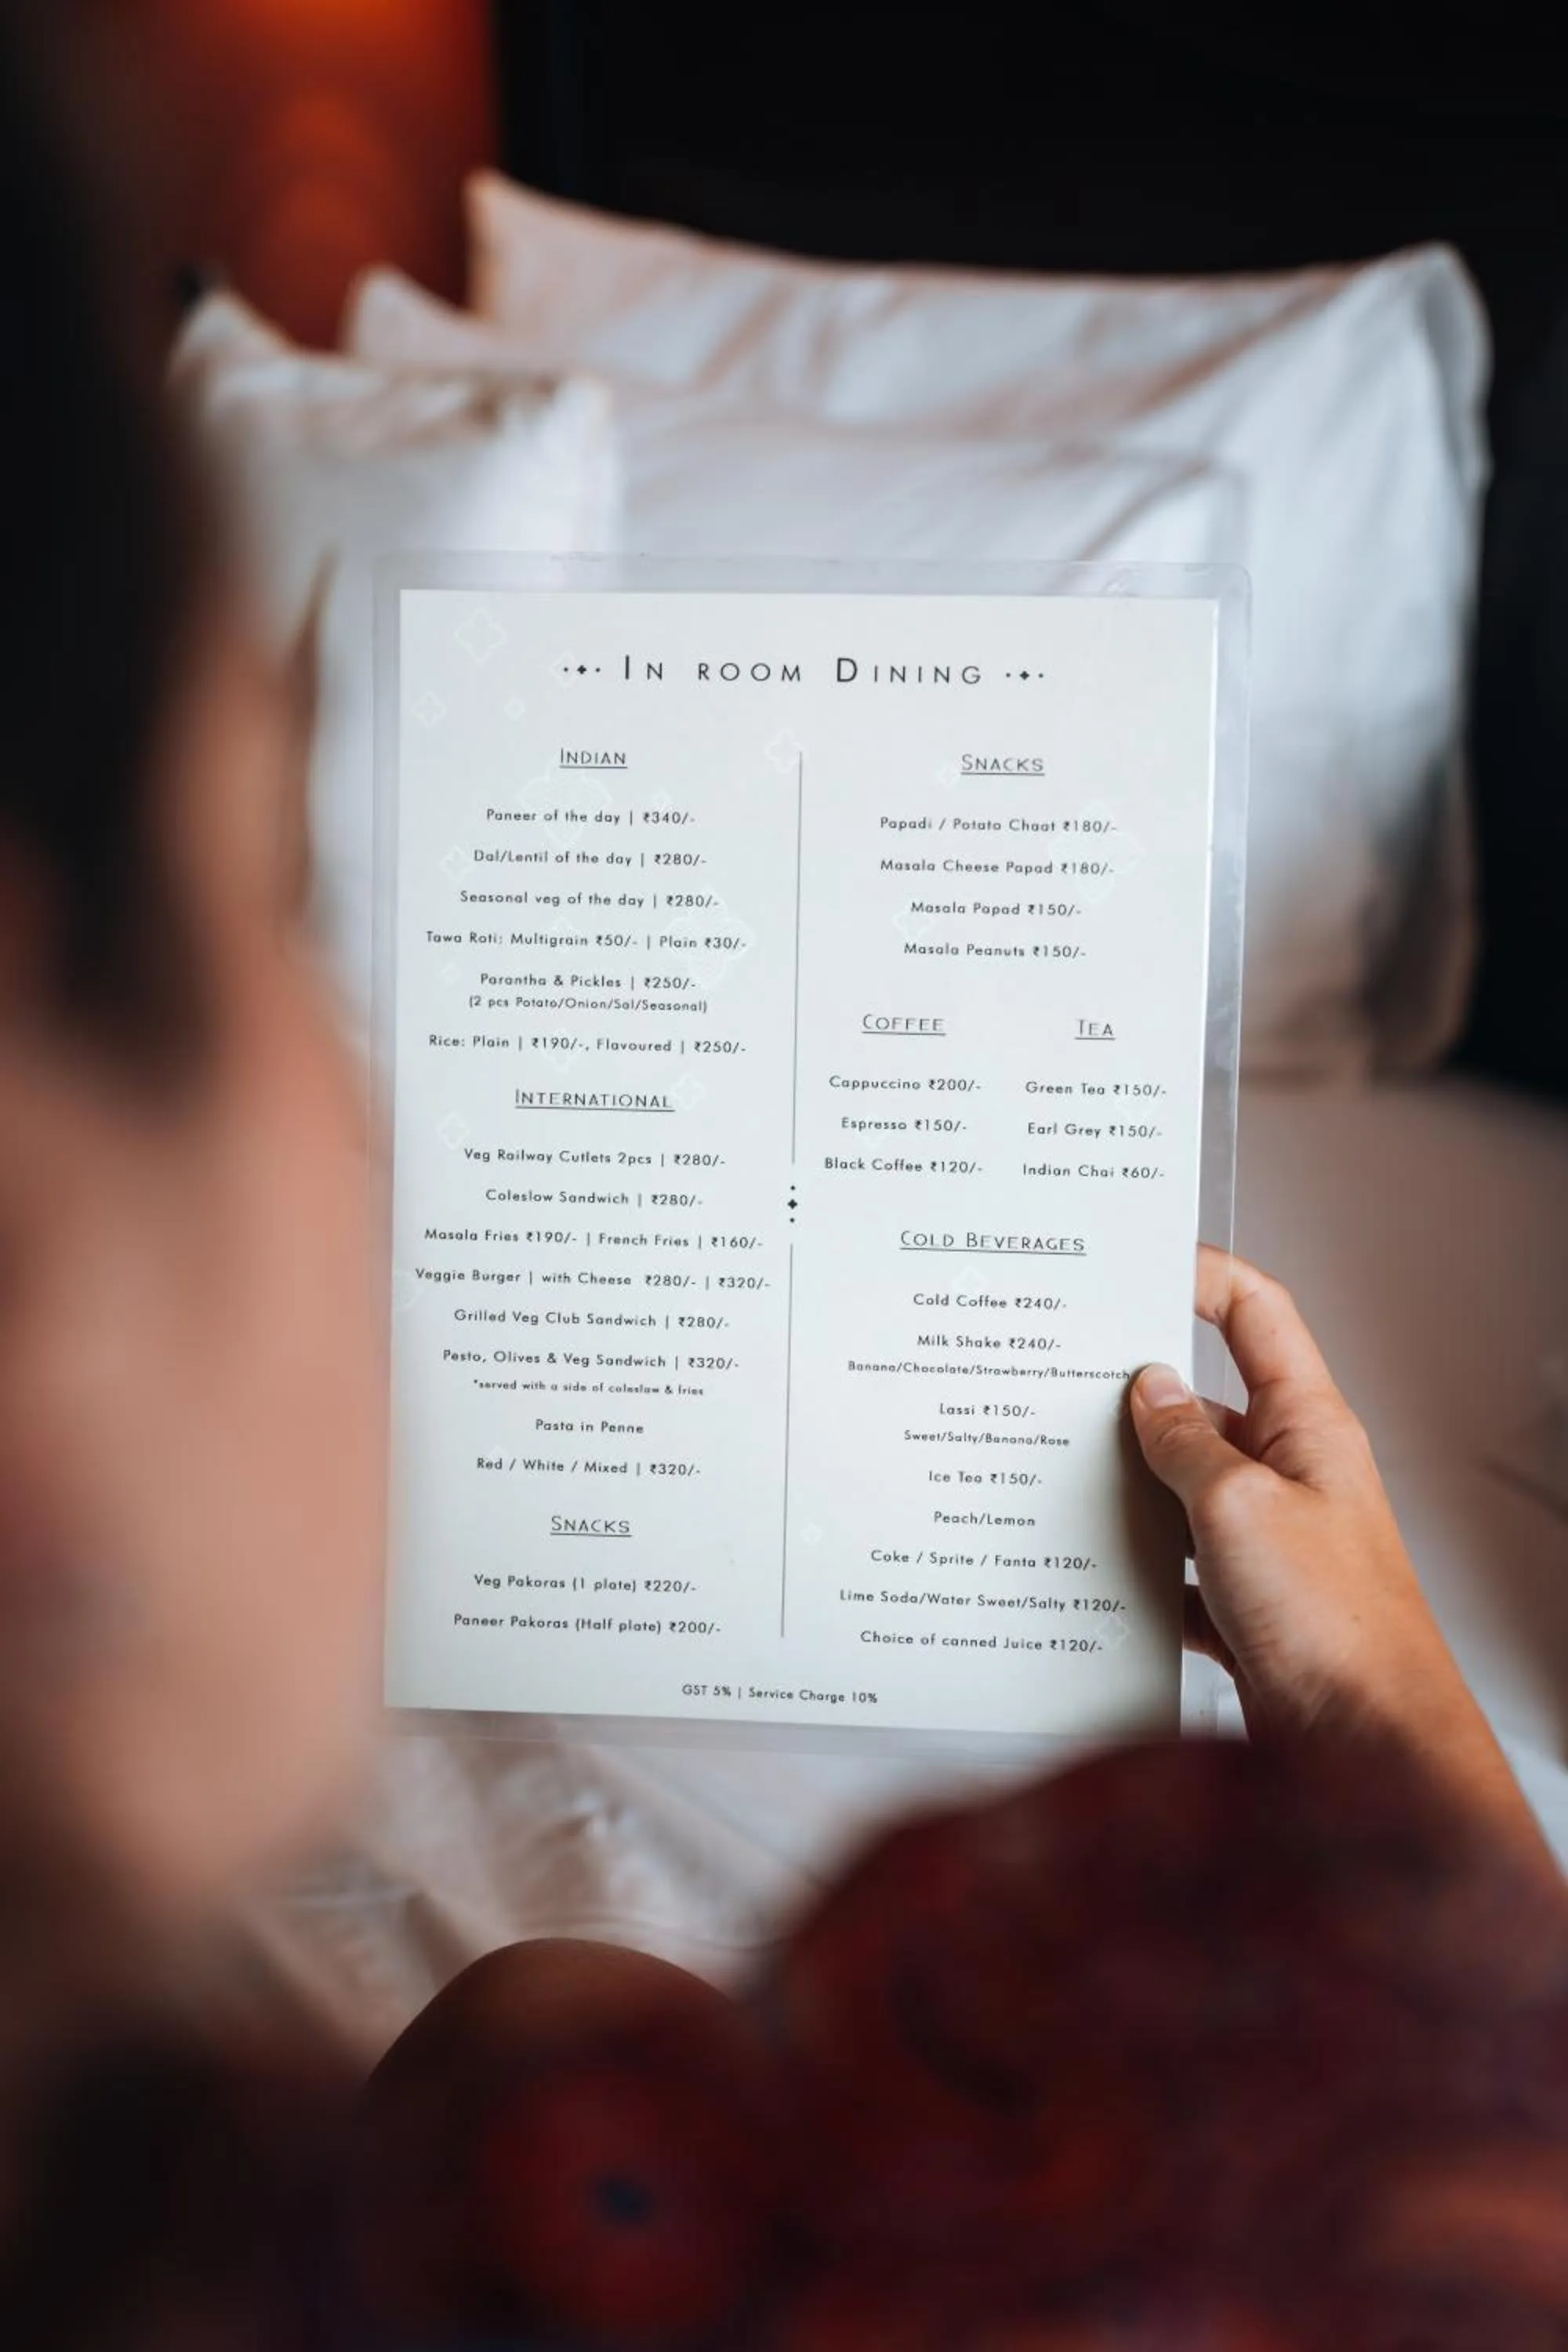 In room Dining
Indian
Paneer of the day | ₹340/-
Dal/Lentil of the day | ₹280/-
Seasonal veg of the day | ₹280/-
Tawa Roti: Multigrain ₹50/- | Plain ₹30/-
Parantha & Pickles | ₹250/-
(2 pcs Potato/Onion/Sal/Seasonal)
Rice: Plain | ₹190/-, Flavoured | ₹250/-
International
Veg Railway Cutlets 2pcs | ₹280/-
Coleslow Sandwich | ₹280/-
Masala Fries ₹190/- | French Fries | ₹160/-
Veggie Burger | with Cheese ₹280/- | ₹320/-
Grilled Veg Club Sandwich | ₹280/-
Pesto, Olives & Veg Sandwich | ₹320/-
*served with a side of coleslaw & fries
Pasta in Penne
Red / White / Mixed | ₹320/-
Snacks
Veg Pakoras (1 plate) ₹220/-
Paneer Pakoras (Half plate) ₹200/-
Snacks
Papadi / Potato Chaat ₹180/-
Masala Cheese Papad ₹180/-
Masala Papad ₹150/-
Masala Peanuts ₹150/-
Coffee
Cappuccino ₹200/-
Espresso ₹150/-
Black Coffee ₹120/-
Tea
Green Tea ₹150/-
Earl Grey ₹150/-
Indian Chai ₹60/-
Cold Beverages
Cold Coffee ₹240/-
Milk Shake ₹240/-
Banana/Chocolate/Strawberry/Butterscotch
Lassi ₹150/-
Sweet/Salty/Banana/Rose
Ice Tea ₹150/-
Peach/Lemon
Coke / Sprite / Fanta ₹120/-
Lime Soda/Water Sweet/Salty ₹120/-
Choice of canned Juice ₹120/-
GST 5% | Service Charge 10%